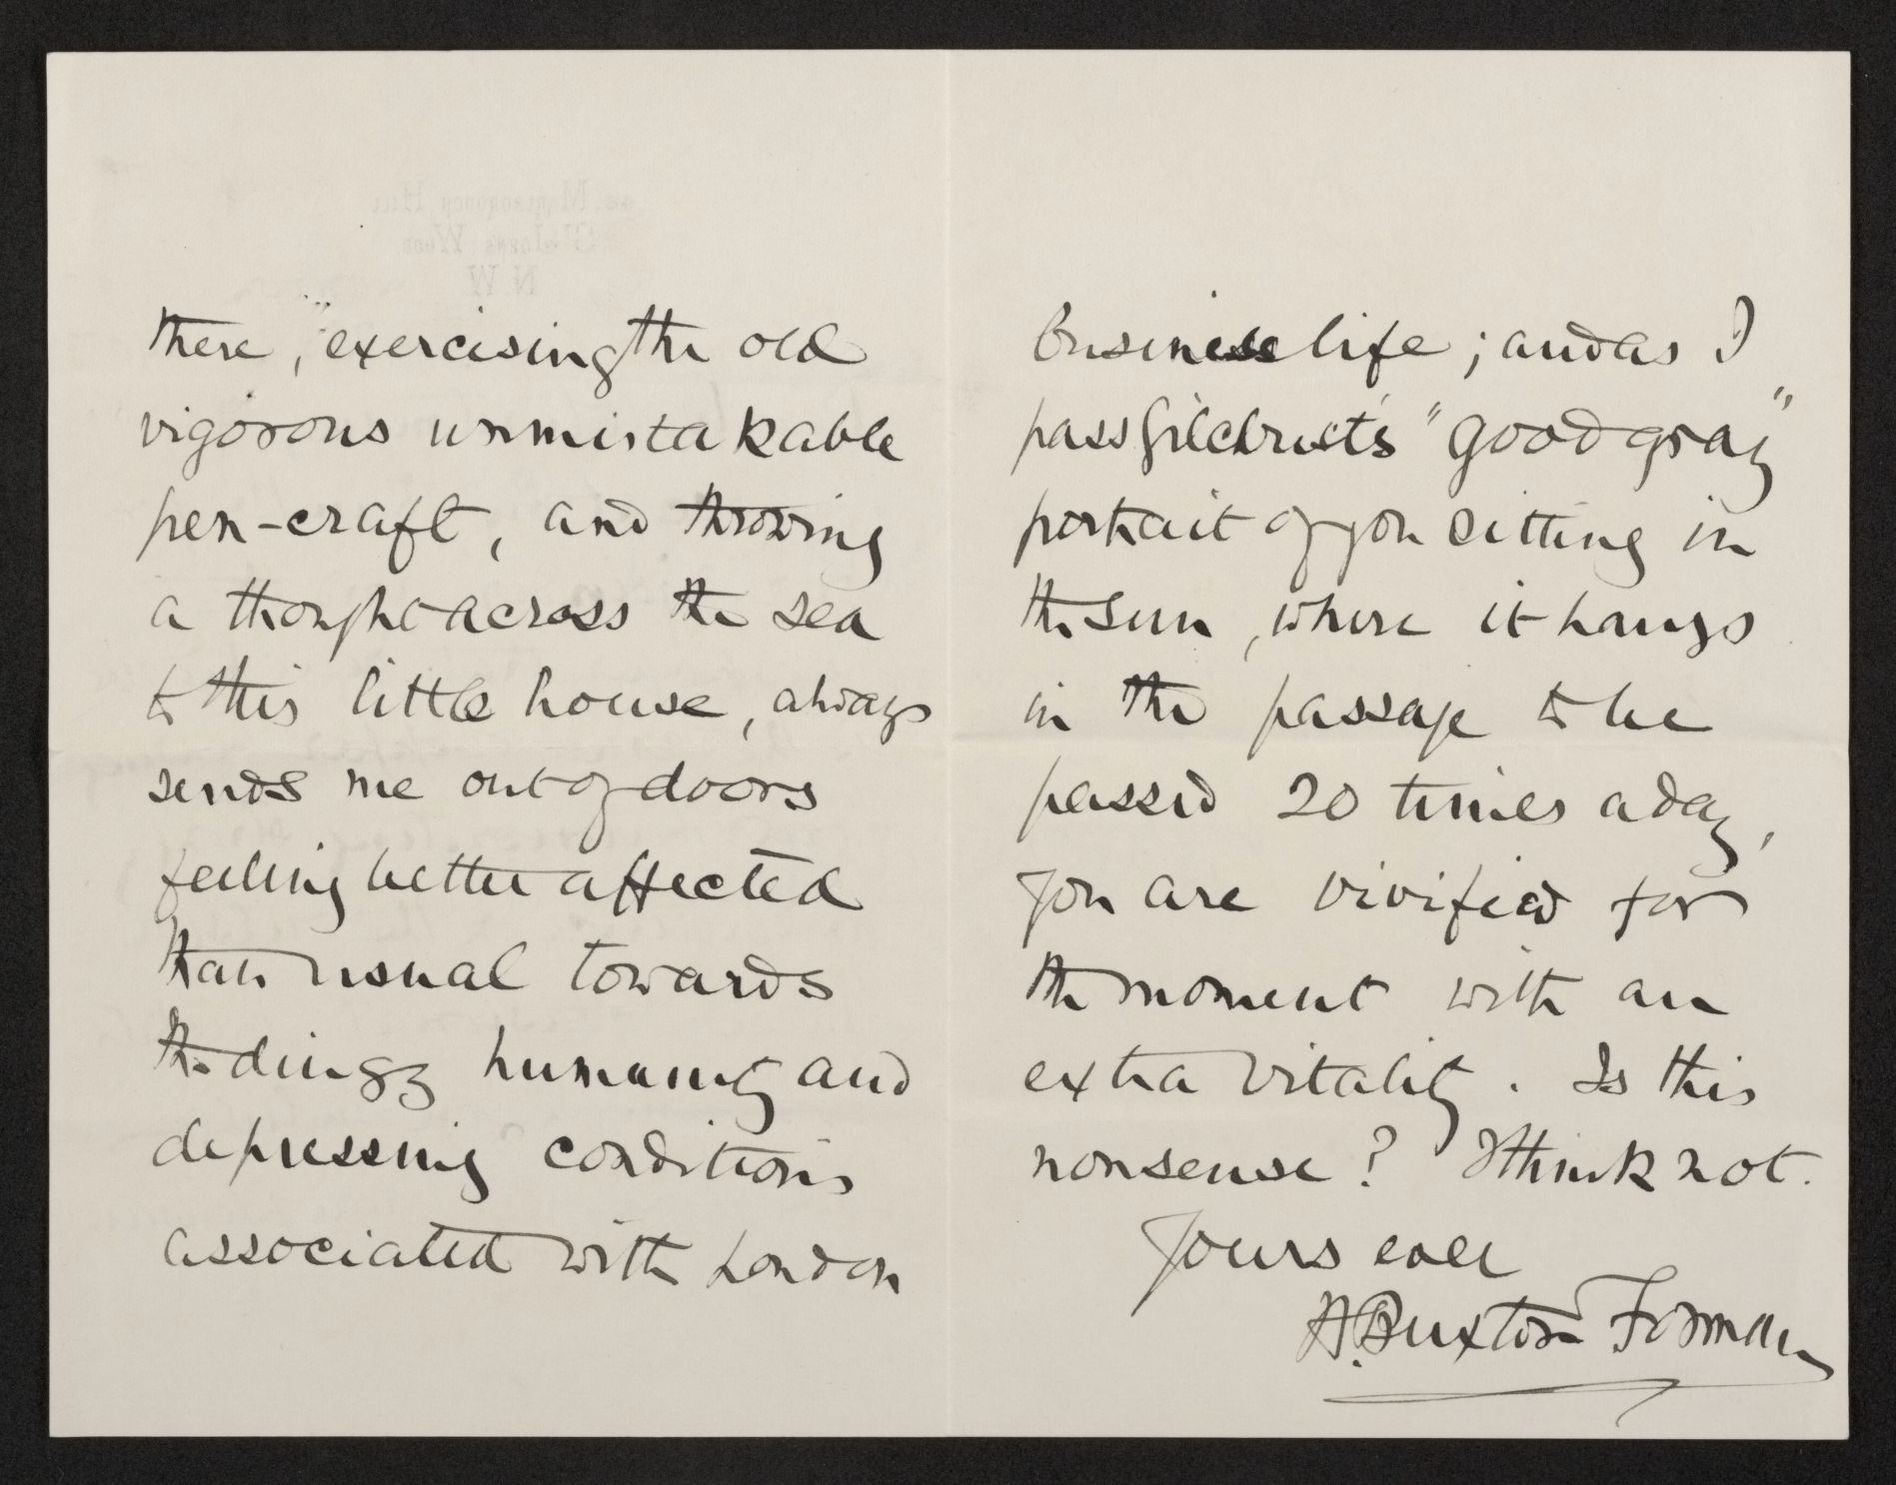 there," exercising the old
vigorous unmistakable
pen-craft, and throwing
a thought across the sea
to this little house, always
sends me out of doors
feeling better affected
than usual towards
the dingy humanity and
depressing conditions
associated with London
business life; and as I
pass Gilchrist's "good gray"
portrait of you sitting in
the sun, where it hangs
in the passage to be
passed 20 times a day,
you are vivified for
the moment with an
extra vitality. Is this
nonsense? I think not.
Yours ever
H. Buxton Forman
Marlborough Hill
St. Johns Wood
N W